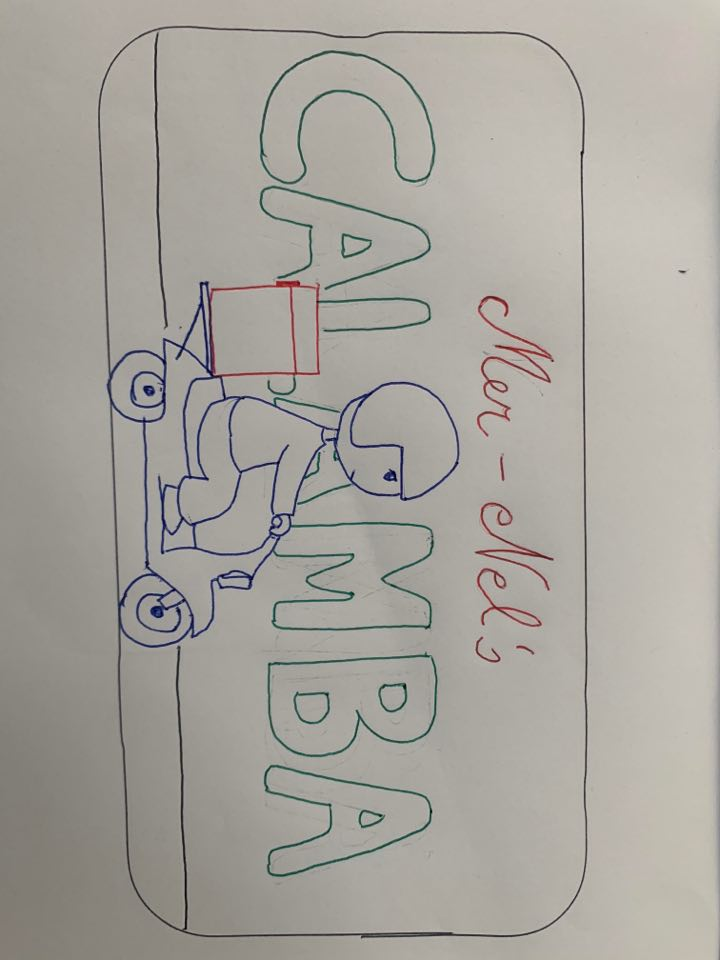 Mer-Nel's
CALAMBA